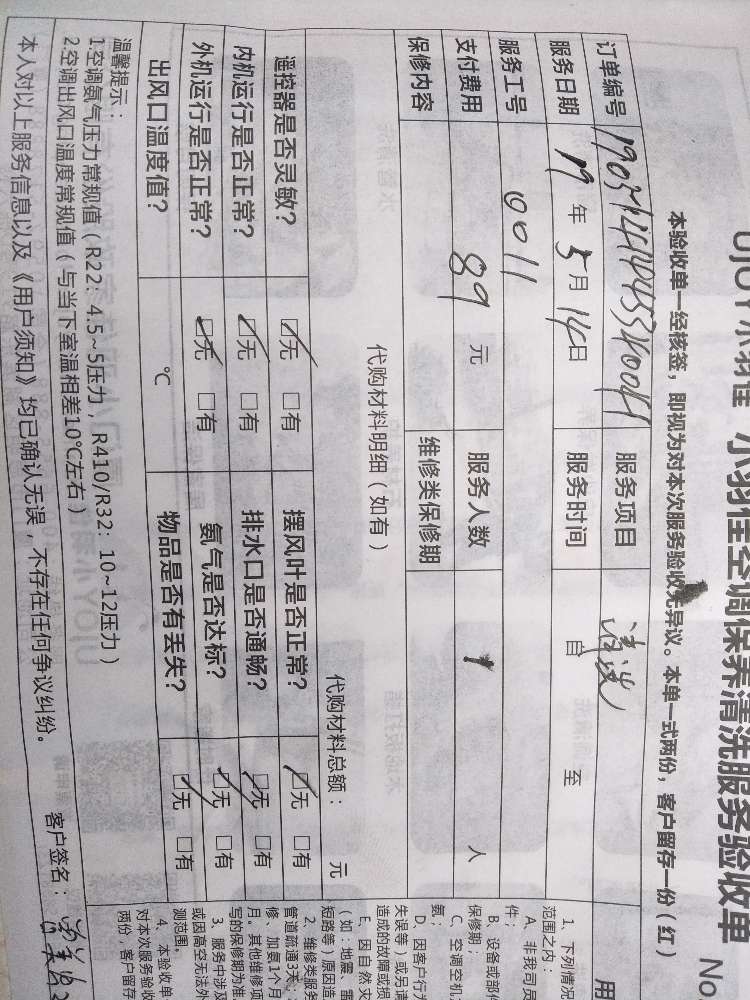 小羽佳 小羽佳空调保养清洗服务验收单 No
本验收单一经核签，即视为对本次服务验收无异议。本单一式两份，客户留存一份（红）
订单编号 服务项目 清洗
服务日期 19 年 5 月 14 日 服务时间 自 至
服务工号 0011
支付费用 89 元 服务人数 1 人
保修内容 维修类保修期
代购材料明细（如有）
代购材料总额： 元
遥控器是否灵敏？ □无 □有 摆风叶是否正常？ □无 □有
内机运行是否正常？ □无 □有 排水口是否通畅？ □无 □有
外机运行是否正常？ □无 □有 氨气是否达标？ □无 □有
出风口温度值？ ℃ 物品是否有丢失？ □无 □有
温馨提示：
1.空调氨气压力常规值（R22：4.5~5压力，R410/R32：10~12压力）
2.空调出风口温度常规值（与当下室温相差10℃左右）
本人对以上服务信息以及《用户须知》均已确认无误，不存在任何争议纠纷。 客户签名：
用
1、下列情况
范围之内：
A、非我司员
件；
B、设备或部件
保修期；
C、空调空机
氨；
D、因客户行为
失误等）或另请
造成的故障或损
E、因自然灾
（如：地震、雷
短路等）原因造
2、维修类服务
管道疏通3天；
修、加氨1个月
月。其他维修项
写的保修期为准
3、服务中涉及
或因高空无法外
测范围。
4、本验收单
对本次服务验收
两份，客户留存